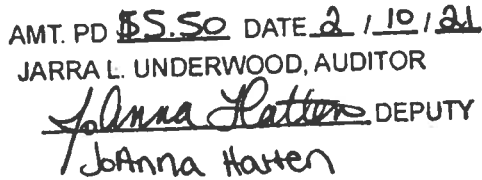 AMT. PD $5.50 DATE 2 / 10 / 21
JARRA L. UNDERWOOD, AUDITOR
JoAnna Hatten DEPUTY
JoAnna Hatten